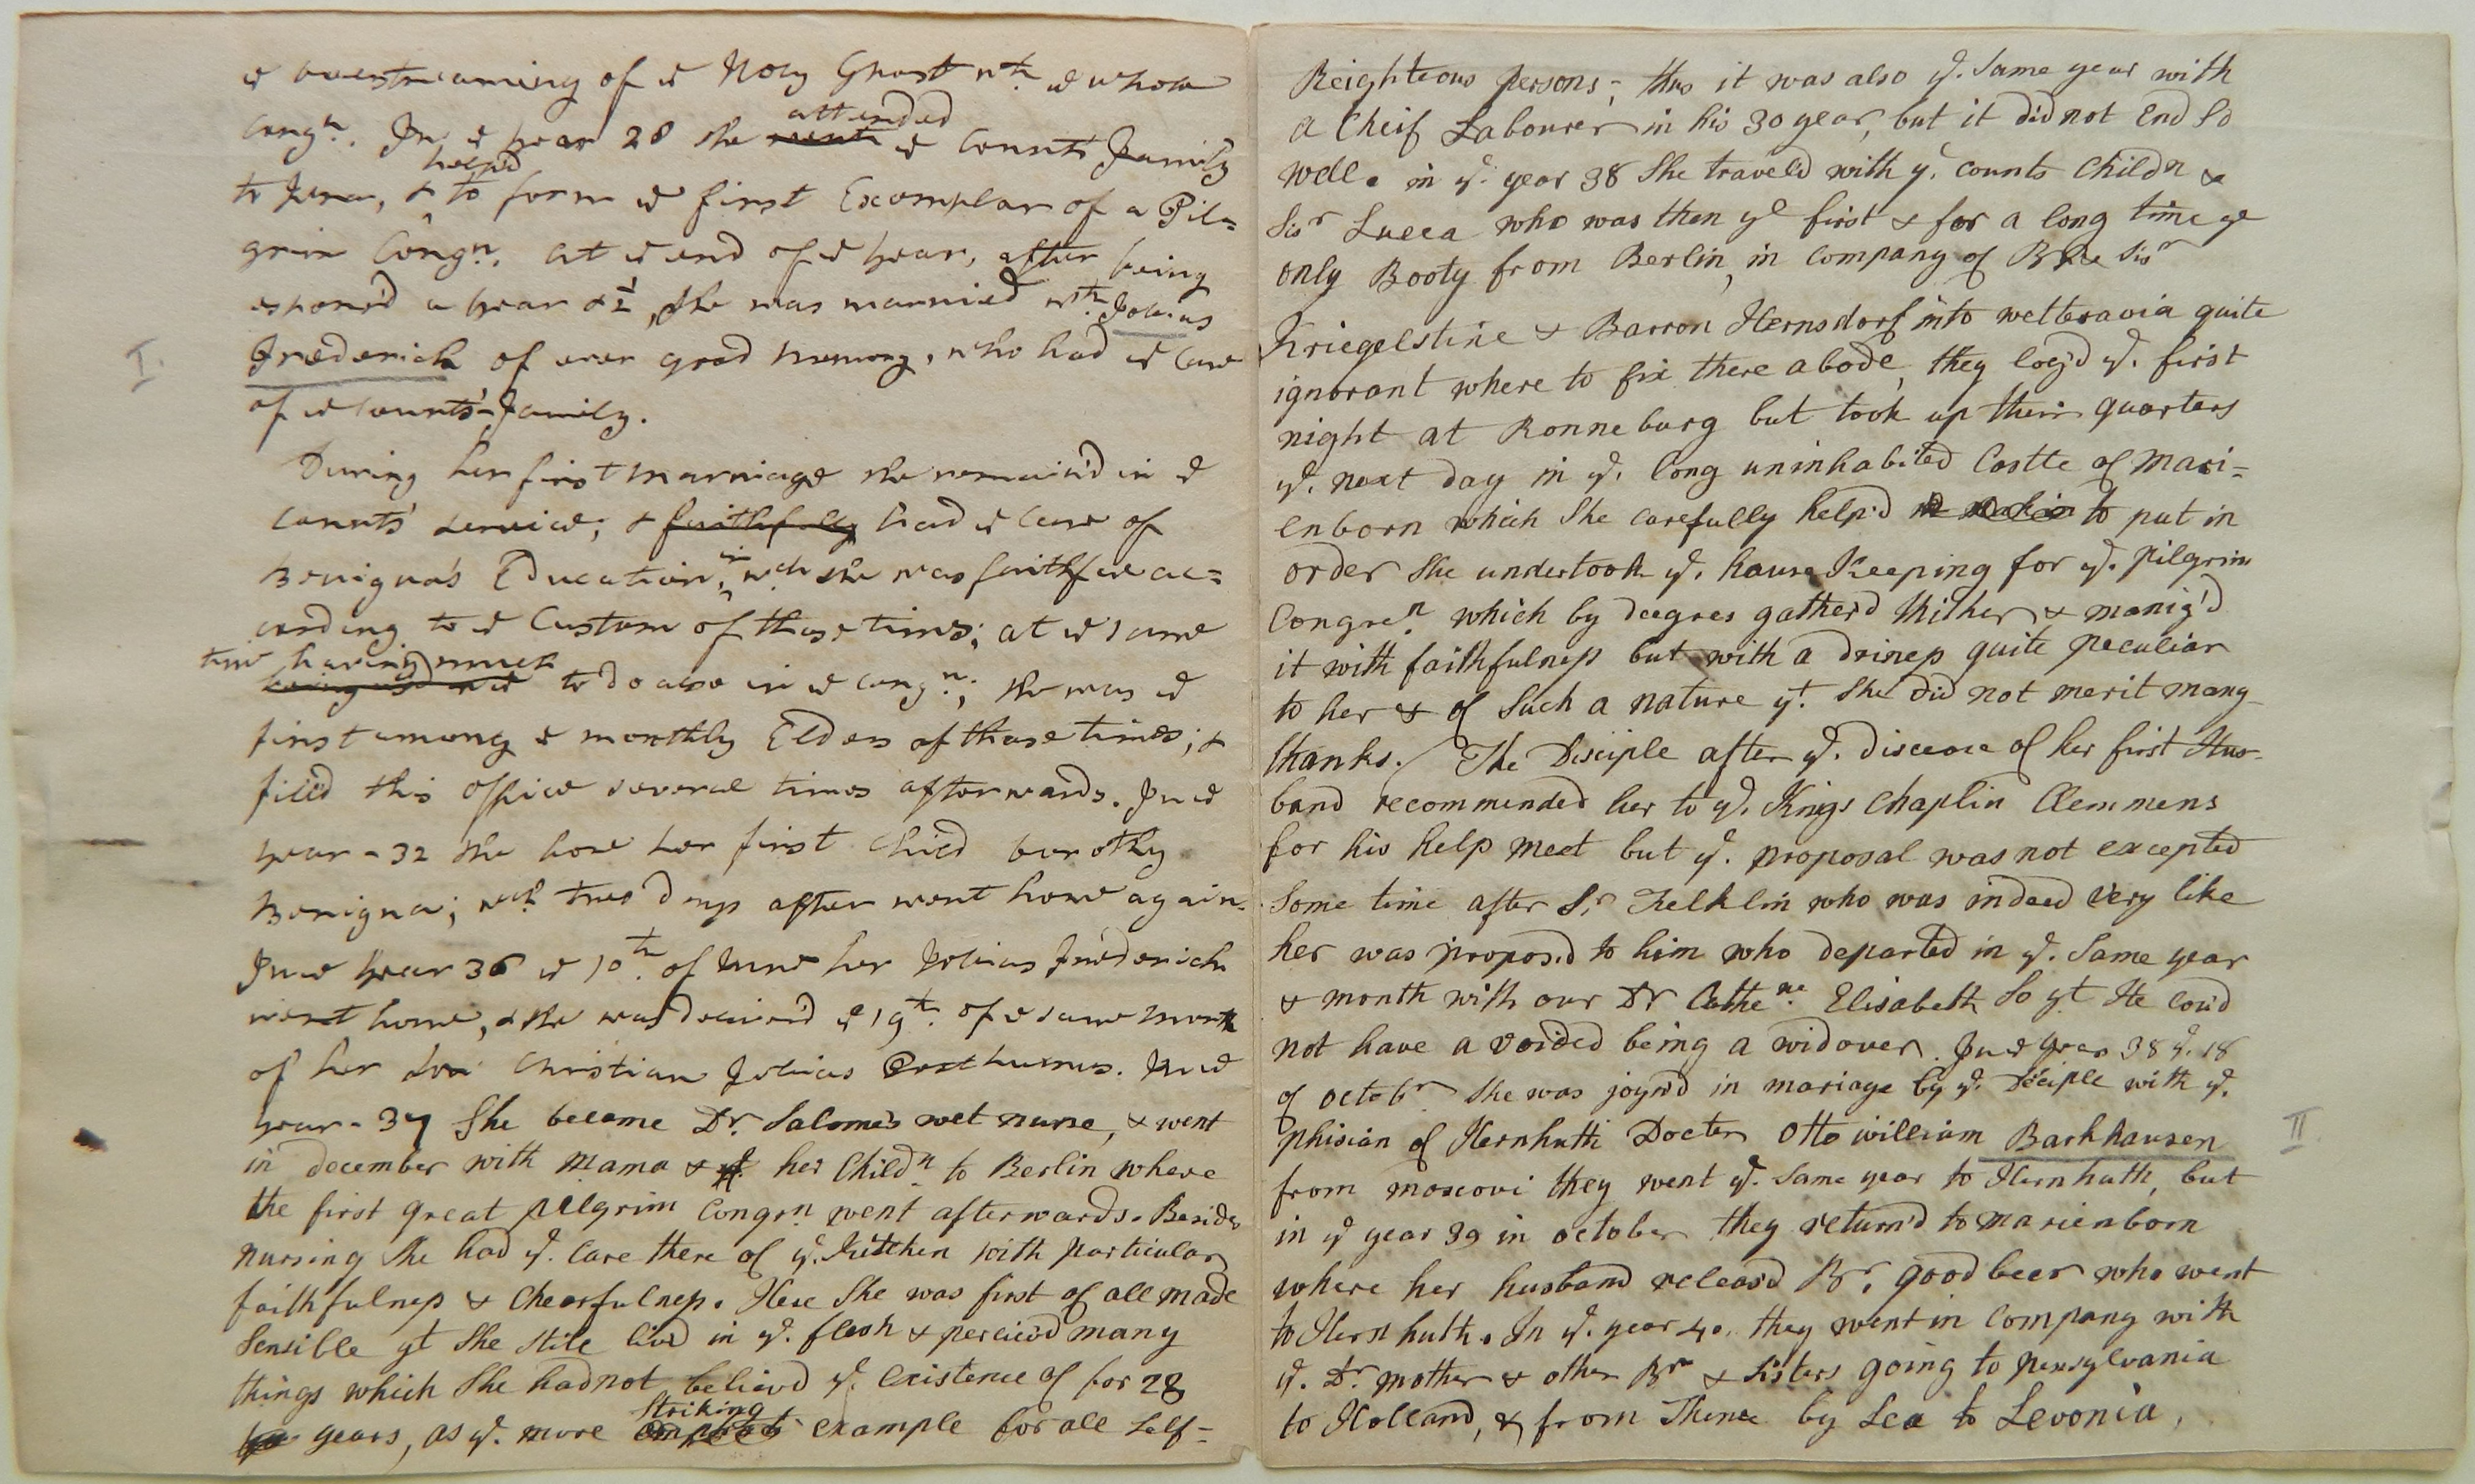 & overstreaming of ye Holy Ghost wth. ye whole
Congn. In ye year 28 she <s>went</s> attended ye Counts Family
to Jena, & helped to form ye first Exemplar of a Pil=
grim Congn. at ye end of ye year, after being
espoused a year & ½, she was married wth. Tobias
I.
Frederich of ever good memory, who had ye care
of ye Counts' Family.
During her first marriage she remain'd in ye
Counts' service; & <s>faithfully</s> had ye Care of
Benigna's Education, in wch she was faithful ac=
cording to ye Custom of those times; at ye same
time having much
to do also in ye congn.; she was ye
first among ye monthly Elders of those times; &
fill'd this office several times afterwards. In ye
year - 32 she bore her first Child Dorothy
Benigna; wch. two days after went home again.
In ye year 36 ye 10th. of June her Tobias Friederich
went home, & she was deliver'd ye 19th. of ye same month
of her son Christian Tobias Posthumus. In ye
year - 37 She became Dr. Salome's wet nurse, & went
in december with Mama & her Childn to Berlin where
the first great pilgrim Congrn. went afterwards. Besides
nursing She had ye. Care there of ye. Kitchen with particular
faithfulness & Chearfulness. Here She was first of all made
Sensible yt She still liv'd in ye. flesh & perciev'd many
things which She had not believd ye. Existence of for 28
years, as ye. more <s>compleat</s> Striking example for all Self=
Reighteous persons; thus it was also ye. Same year with
a Cheif Labourer in his 30 year, but it did not End So
well. in ye. year 38 She traveld with ye. Counts Childn &
Sisr Lueca who was then ye first & for a long time ye
only Booty from Berlin, in Company of Br & Sisr
Kriegelstine & Barron Hernsdorf into wetteravia quite
ignorant where to fix there abode, they log'd ye. first
night at Ronneburg but took up their quarters
ye. next day in ye. long uninhabited Castle of Mari=
enborn which She carefully help'd to put in
order She undertook ye. house Keeping for ye. pilgrim
Congren. which by deegres gather'd thither & manig'd
it with faithfulness but with a driness quite peculiar
to her & of Such a nature yt. She did not merit many
thanks. / The Disciple after ye. discease of her first Hus-
band recommended her to ye. Kings Chaplin Clemmens
for his help meet but ye. proposal was not excepted
Some time after Sr. Kelklin who was indeed very like
her was propos.d to him who departed in ye. Same year
& month with our Dr Cathene. Elisabeth So yt He cou'd
not have avoided being a widower. In ye year 38 ye. 18
of octobr She was joyn'd in mariage by ye. Deciple with ye.
phisian of Hernhutti Docter Otto william Barkhausen
II.
from moscovi they went ye. Same year to Hernhuth, but
in ye year 39 in october they return'd to marienborn
where her husband releas'd Br. goodbeer who went
to Hernhuth. In ye. year 40.. they went in Company with
ye. Dr. mother & other Brn & Sisters going to pensylvania
to Holland, & from Thence by Sea to Levonia,